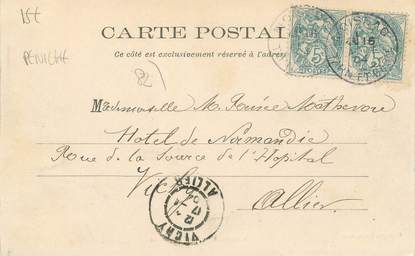 15€
PENICHE
CARTE POSTAL
Ce côté est exclusivement réservé à l'adresse
5
5
Mademoiselle M. Mathevon
Hotel de Normandie
Rue de la Source de l'Hopital
Vichy
Allier
VICHY
ALLIER
12
17